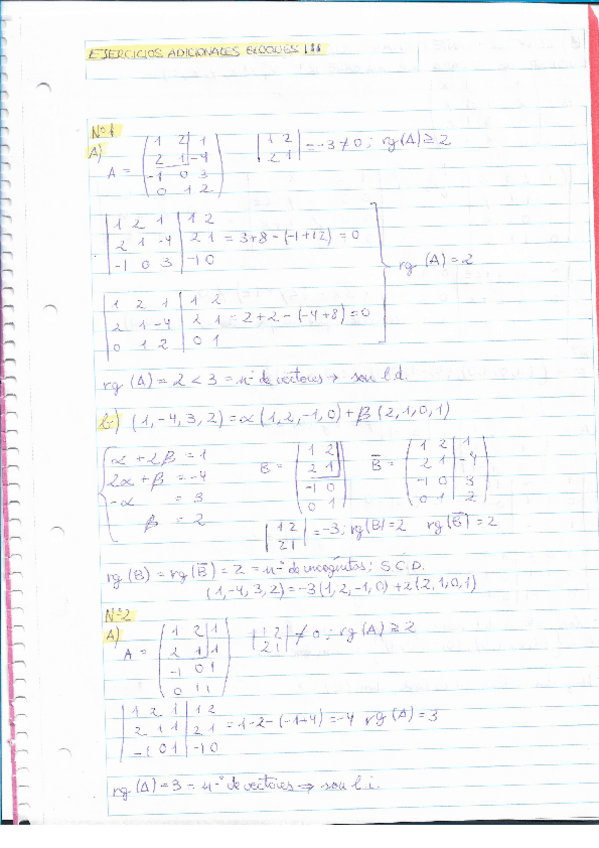 EJERCICIOS ADICIONALES BLOQUES III
Nº1
A)
A = (1 2 1
2 1 -4
-1 0 3
0 1 2)
|1 2
2 1| = -3 ≠ 0; rg(A) ≥ 2
|1 2 1| 1 2
|2 1 -4| 2 1 = 3+8-(-1+12) = 0
|-1 0 3| -1 0
rg (A) = 2
|1 2 1| 1 2
|2 1 -4| 2 1 = 2+2-(-4+8) = 0
|0 1 2| 0 1
rg (A) = 2 < 3 = nº de vectores → son l.d.
b) (1,-4,3,2) = α(1,2,-1,0) + β(2,1,0,1)
α + 2β = 1
2α + β = -4
-α = 3
β = 2
B = (1 2
2 1
-1 0
0 1)
B̅ = (1 2 1
2 1 -4
-1 0 3
0 1 2)
|1 2
2 1| = -3; rg(B) = 2 rg(B̅) = 2
rg (B) = rg(B̅) = 2 = nº de incógnitas; S.C.D.
(1,-4,3,2) = -3(1,2,-1,0) + 2(2,1,0,1)
Nº2
A)
A = (1 2 1
2 1 1
-1 0 1
0 1 1)
|1 2
2 1| ≠ 0; rg(A) ≥ 2
|1 2 1| 1 2
|2 1 1| 2 1 = 1-2-(-1+4) = -4 rg(A) = 3
|-1 0 1| -1 0
rg (A) = 3 = nº de vectores → son l.i.